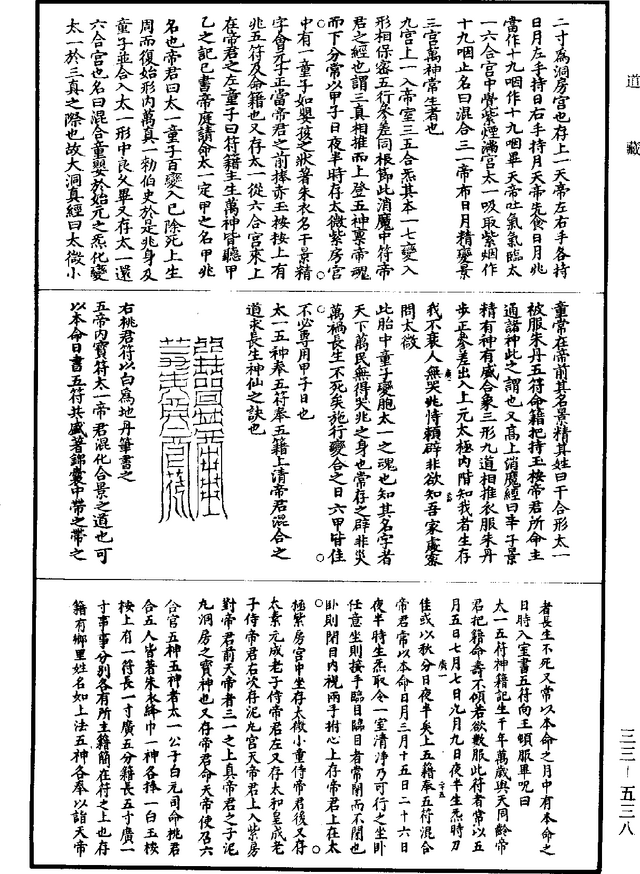 道藏
二寸為洞房宮也存上一天帝左右手各持
日月左手持日右手持月天帝先食日月兆
當作十九咽作十九咽畢天帝吐氣氣臨太
一六合宮中鬱紫煙滿宮太一吸取紫烟作
十九咽止名曰混合三一帝布日月精變景
三宮萬神常生者也
九宮上一入帝室三五合炁其本一七變入
形相保審五行參差同根節此消魔中符帝
君之經也謂三真相推而上登五神禀帝魂
而下分常以甲子日夜半時存太微紫房宮
中有一童子如嬰孩之狀著朱衣名干景精
字會元子正當帝君之前捧赤玉桉桉上有
兆五符及命籍也又存太一從六合宮來上
在帝君之左童子曰符籍主生萬神皆聽甲
乙之記已書帝庭請命太一定甲之名甲兆
名也帝君曰太一童子百變入已除死上生
周而復始形內萬真一勑伯史於是兆身及
童子並合入太一形中良久畢又存太一還
六合宮也名曰混合童嬰於始元之炁化變
太一於三真之際也故大洞真經曰太微小
童常在帝前其名景精其姓曰干合形太一
被服朱丹五符命籍把持玉桉帝君所命主
通諸神此之謂也又高上消魔經曰辛子景
精有神有威合象三形九道相推衣服朱丹
步正參差出入上元太極內階知我者生存
我不衰人無哭兆恃賴辟非欲知吾家處密
問太微
此胎中童子變胞太一之魂也知其名字者
天下萬民無得哭兆之身也當存之辟非災
萬禍長生不死矣施行變合之日六甲皆佳
不必專用甲子日也
太一五神奉五符奉五籍上清帝君混合之
道求長生神仙之訣也
右桃君符以白為地丹筆書之
五帝內寶符太一帝君混化合景之道也可
以本命日書五符共盛著錦囊中帶之帶之
者長生不死又常以本命之月中有本命之
日時入室書五符向王頓服畢呪曰
太一五符神籍記生千年萬歲與天同齡帝
君把籍命壽不傾若欲數服此符者常以五
月五日七月七日九月九日夜半生炁時刀
佳或以秋分日夜半矣上五籍奉五符混合
帝君常以本命日月三月十五日二十六日
夜半時生炁取令一室清淨乃可行之坐卧
任意坐則接手臨目臨目者常閉而不閉也
卧則閉目內視兩手拊心上存帝君上在太
極紫房宮中坐存太微小童侍帝君後又存
太素元成老子侍帝君左又存太和皇成老
子侍帝君右次存泥丸宮天帝君上入紫房
對帝君前天帝者三一之上真帝君之子泥
丸洞房之寶神也又存帝君命天帝使召六
合官五神五神者太一公子白元司命桃君
合五人皆著朱衣絳巾一神各捧一白玉桉
桉上有一符長一寸廣五分籍長五寸廣一
寸事事分別各有所主籍簡在符之上也存
籍有鄉里姓名如上法五神各奉以詣天帝
三三—五三八